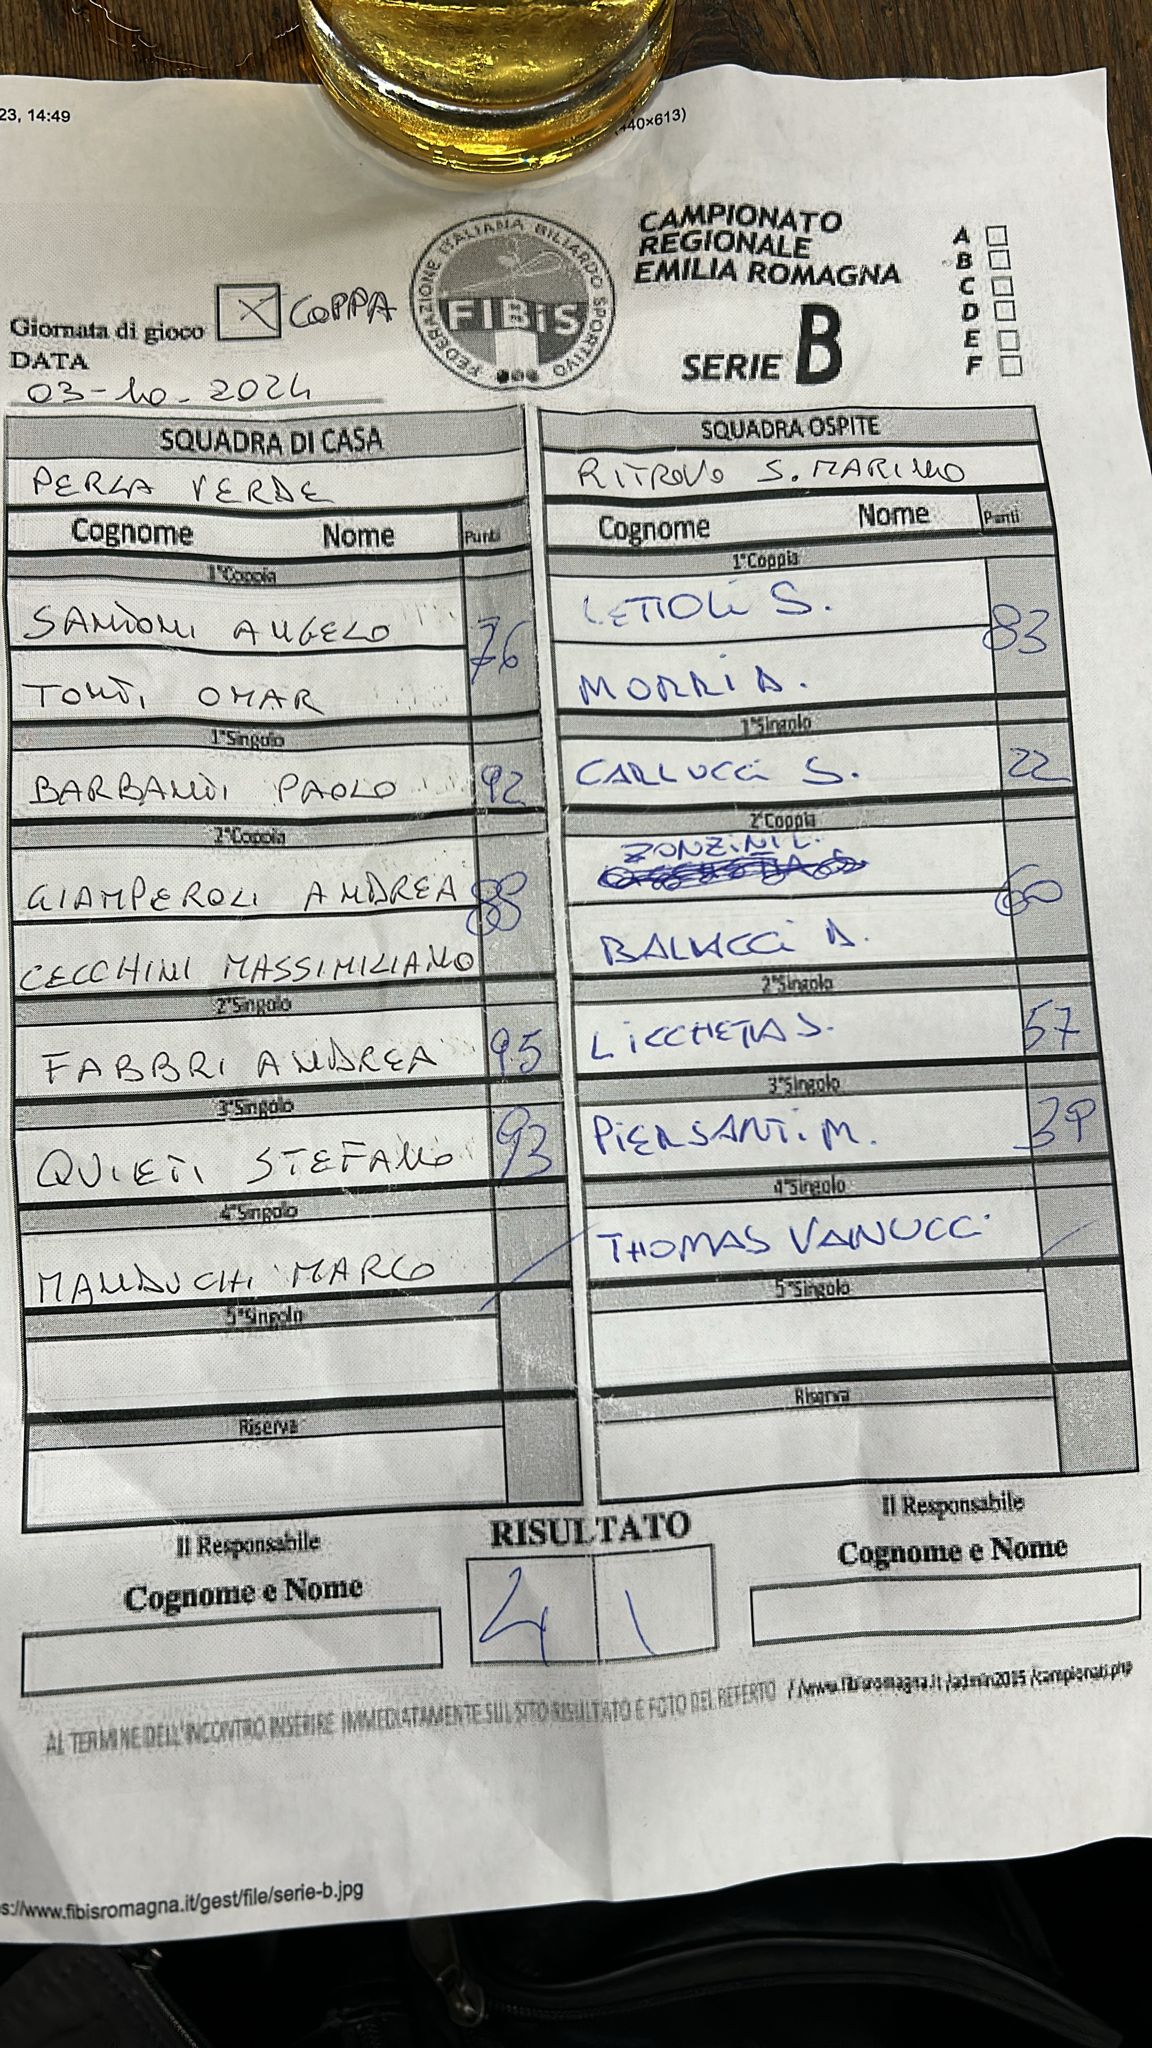 23, 14:49
(440×613)
FEDERAZIONE ITALIANA BILIARDO SPORTIVO
FIBiS
CAMPIONATO
REGIONALE
EMILIA ROMAGNA
SERIE B
A
B
C
D
E
F
Giornata di gioco X COPPA
DATA
03-10-2024
SQUADRA DI CASA
PERLA VERDE
Cognome Nome Punti
1°Coppia
SANTONI ANGELO
76
TONTI OMAR
1°Singolo
BARBANTI PAOLO 92
2°Coppia
GIAMPEROLI ANDREA
88
CECCHINI MASSIMILIANO
2°Singolo
FABBRI ANDREA 95
3°Singolo
QUIETI STEFANO 93
4°Singolo
MANDUCHI MARCO /
5°Singolo
Riserva
SQUADRA OSPITE
RITROVO S. MARINO
Cognome Nome Punti
1°Coppia
LETTOLI S.
83
MORRI D.
1°Singolo
CARLUCCI S. 22
2°Coppia
ZONZINI L.
60
BALUCCI D.
2°Singolo
LICCHETTA S. 57
3°Singolo
PIERSANTI M. 39
4°Singolo
THOMAS VANUCCI /
5°Singolo
Riserva
Il Responsabile
Cognome e Nome
RISULTATO
4 1
Il Responsabile
Cognome e Nome
AL TERMINE DELL'INCONTRO INSERIRE IMMEDIATAMENTE SUL SITO RISULTATO E FOTO DEL REFERTO //www.fibisromagna.it/admin2015/campionati.php
s://www.fibisromagna.it/gest/file/serie-b.jpg